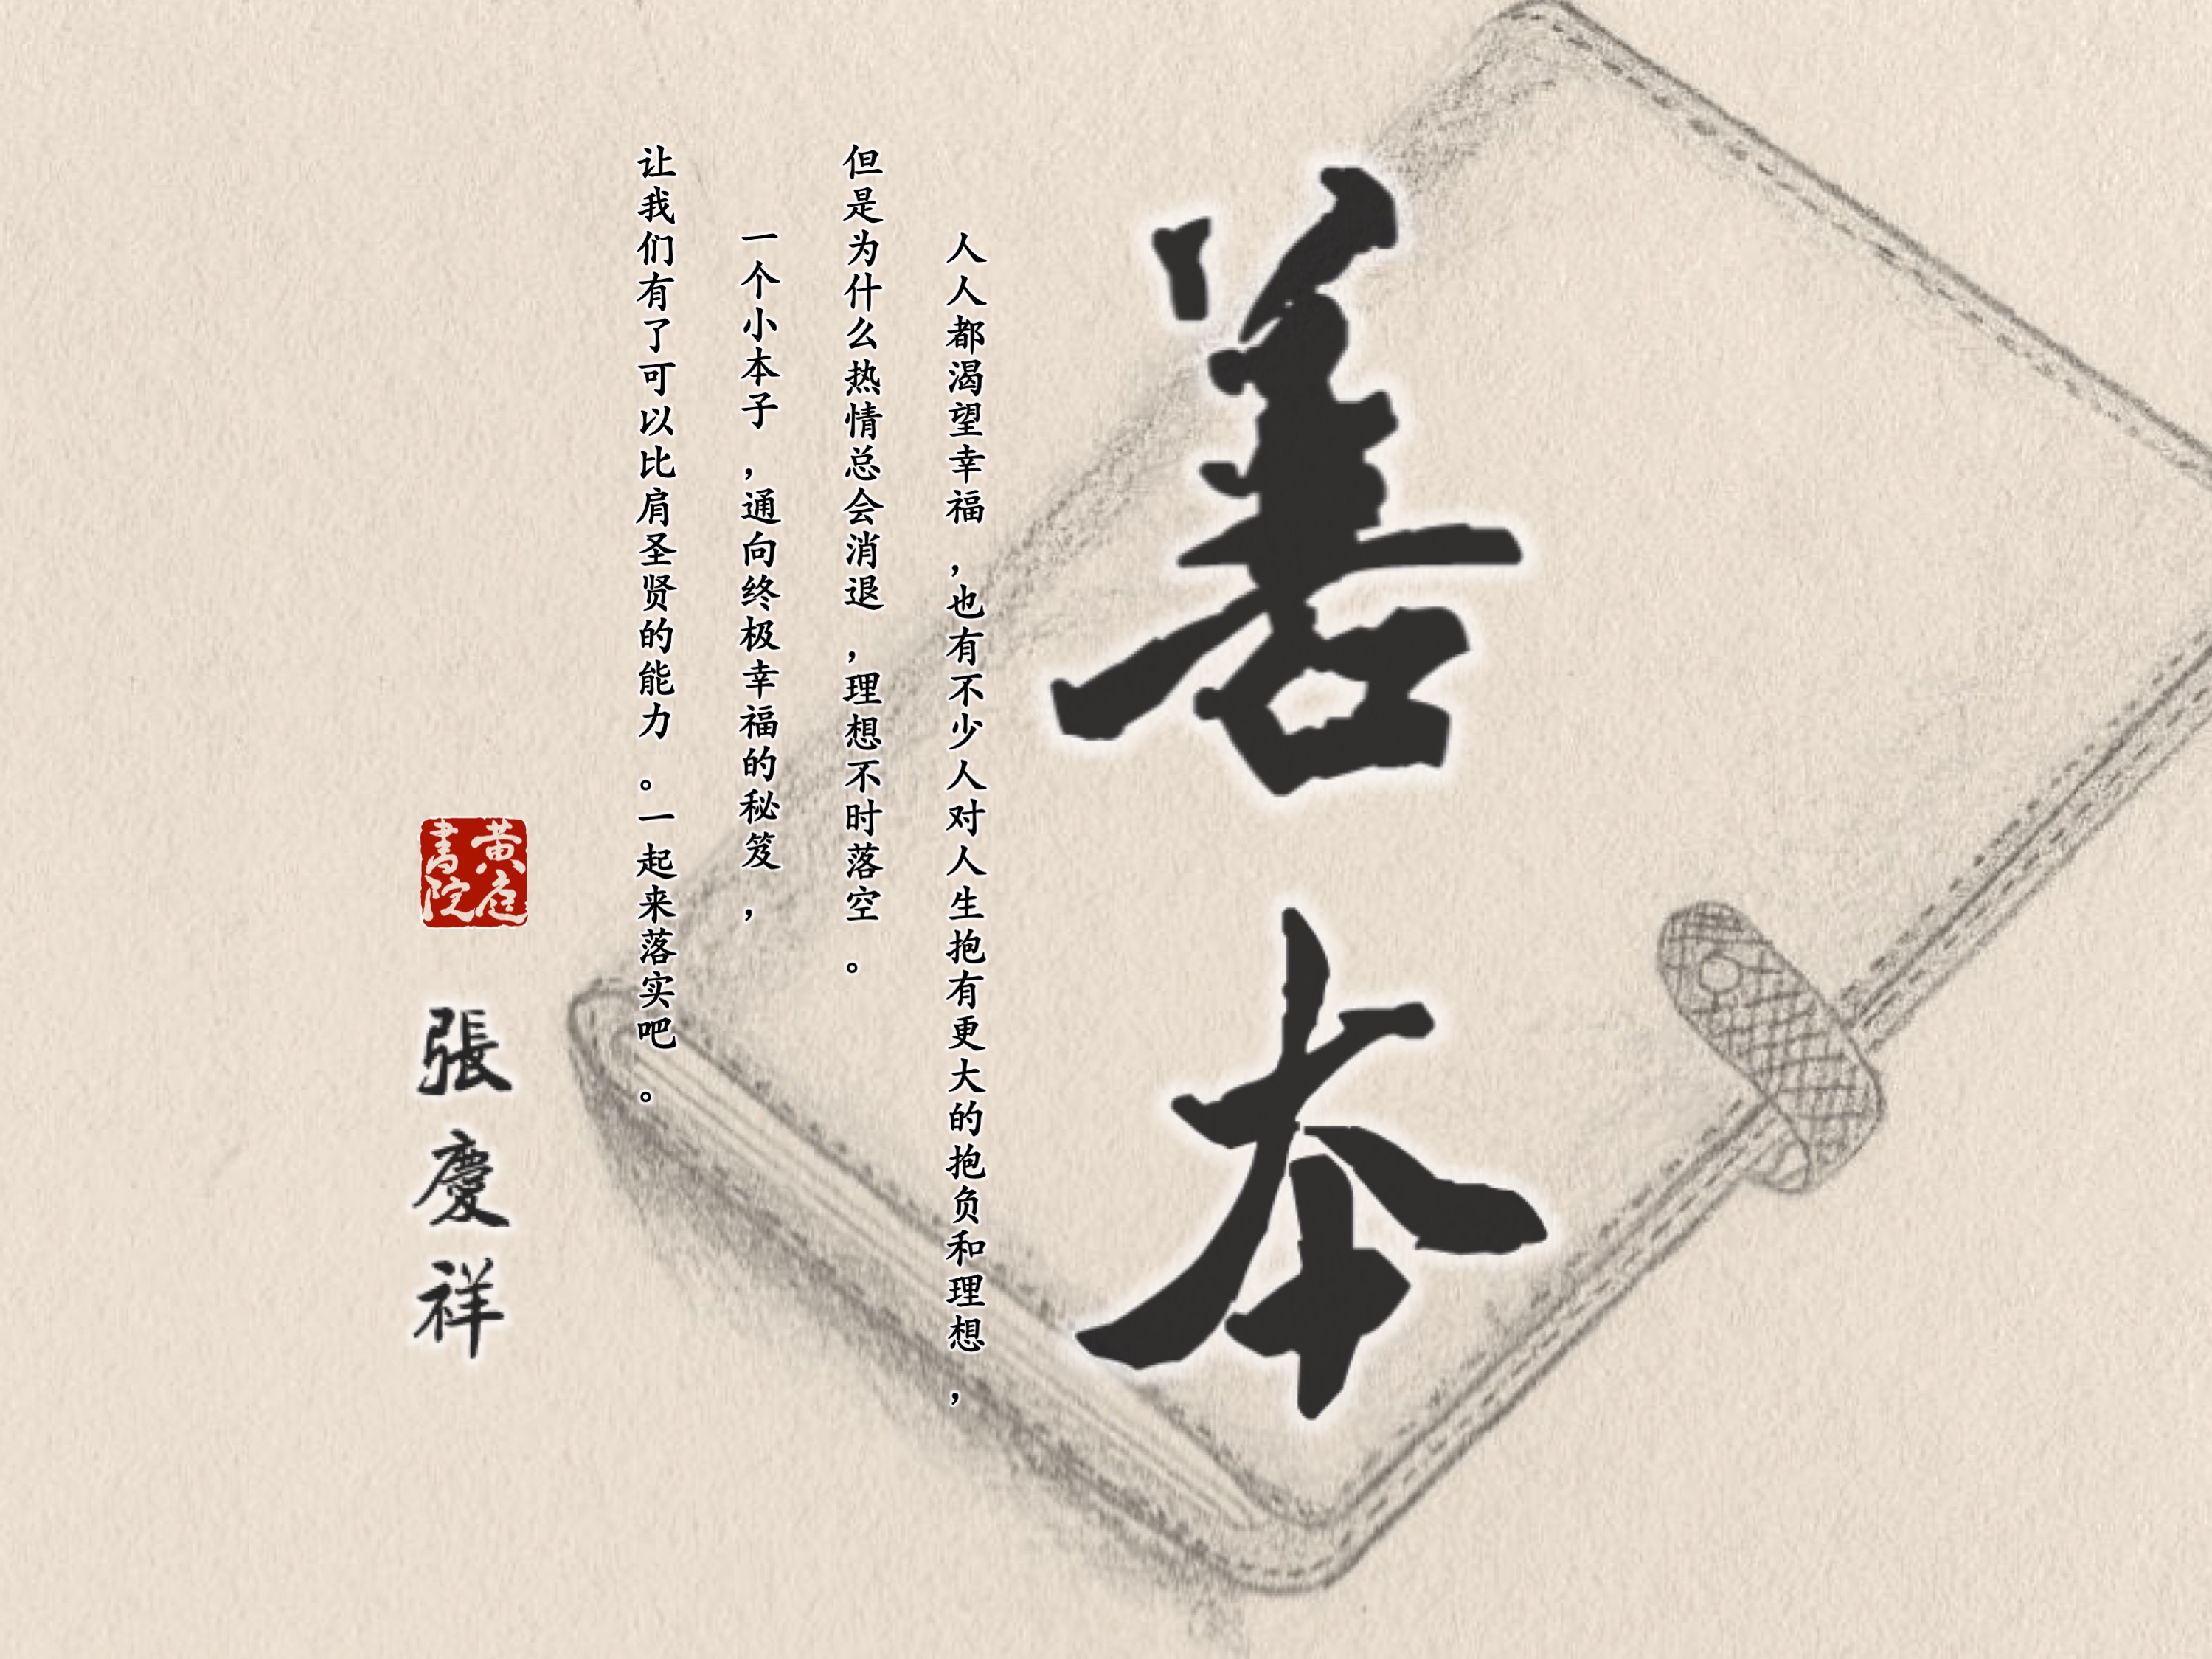 善本
人人都渴望幸福，也有不少人对人生抱有更大的抱负和理想，
但是为什么热情总会消退，理想不时落空。
一个小本子，通向终极幸福的秘笈，
让我们有了可以比肩圣贤的能力。一起来落实吧。
黄庭
書院
張慶祥